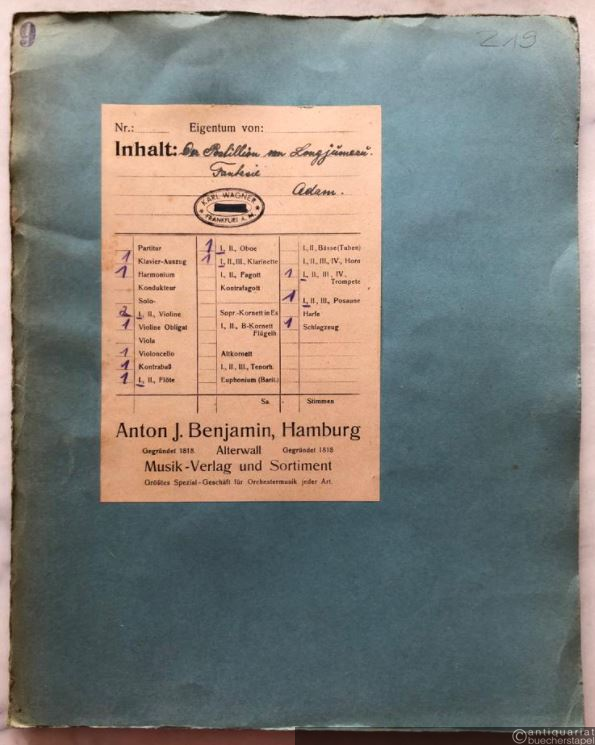 9
219
Nr.: Eigentum von:
Inhalt: Der Postillion von Longjumeau.
Fantasie
Adam.
KARL WAGNER
FRANKFURT A. M.
Partitur
1 Klavier-Auszug
1 Harmonium
Kondukteur
Solo-
2 I., II., Violine
1 Violine Obligat
Viola
1 Violoncello
1 Kontrabaß
1 I., II., Flöte
1 I., II., Oboe
1 I., II., III., Klarinette
I., II., Fagott
Kontrafagott
Sopr.-Kornett in Es
I., II., B-Kornett
Flügelh.
Altkornett
I., II., III., Tenorh.
Euphonium (Barit.)
Sa.
I., II., Bässe (Tuben)
I., II., III., IV., Horn
1 I., II., III., IV.,
Trompete
1 I., II., III., Posaune
Harfe
1 Schlagzeug
Stimmen
Anton J. Benjamin, Hamburg
Gegründet 1818. Alterwall Gegründet 1818
Musik-Verlag und Sortiment
Größtes Spezial-Geschäft für Orchestermusik jeder Art.
antiquariat
buecherstapel